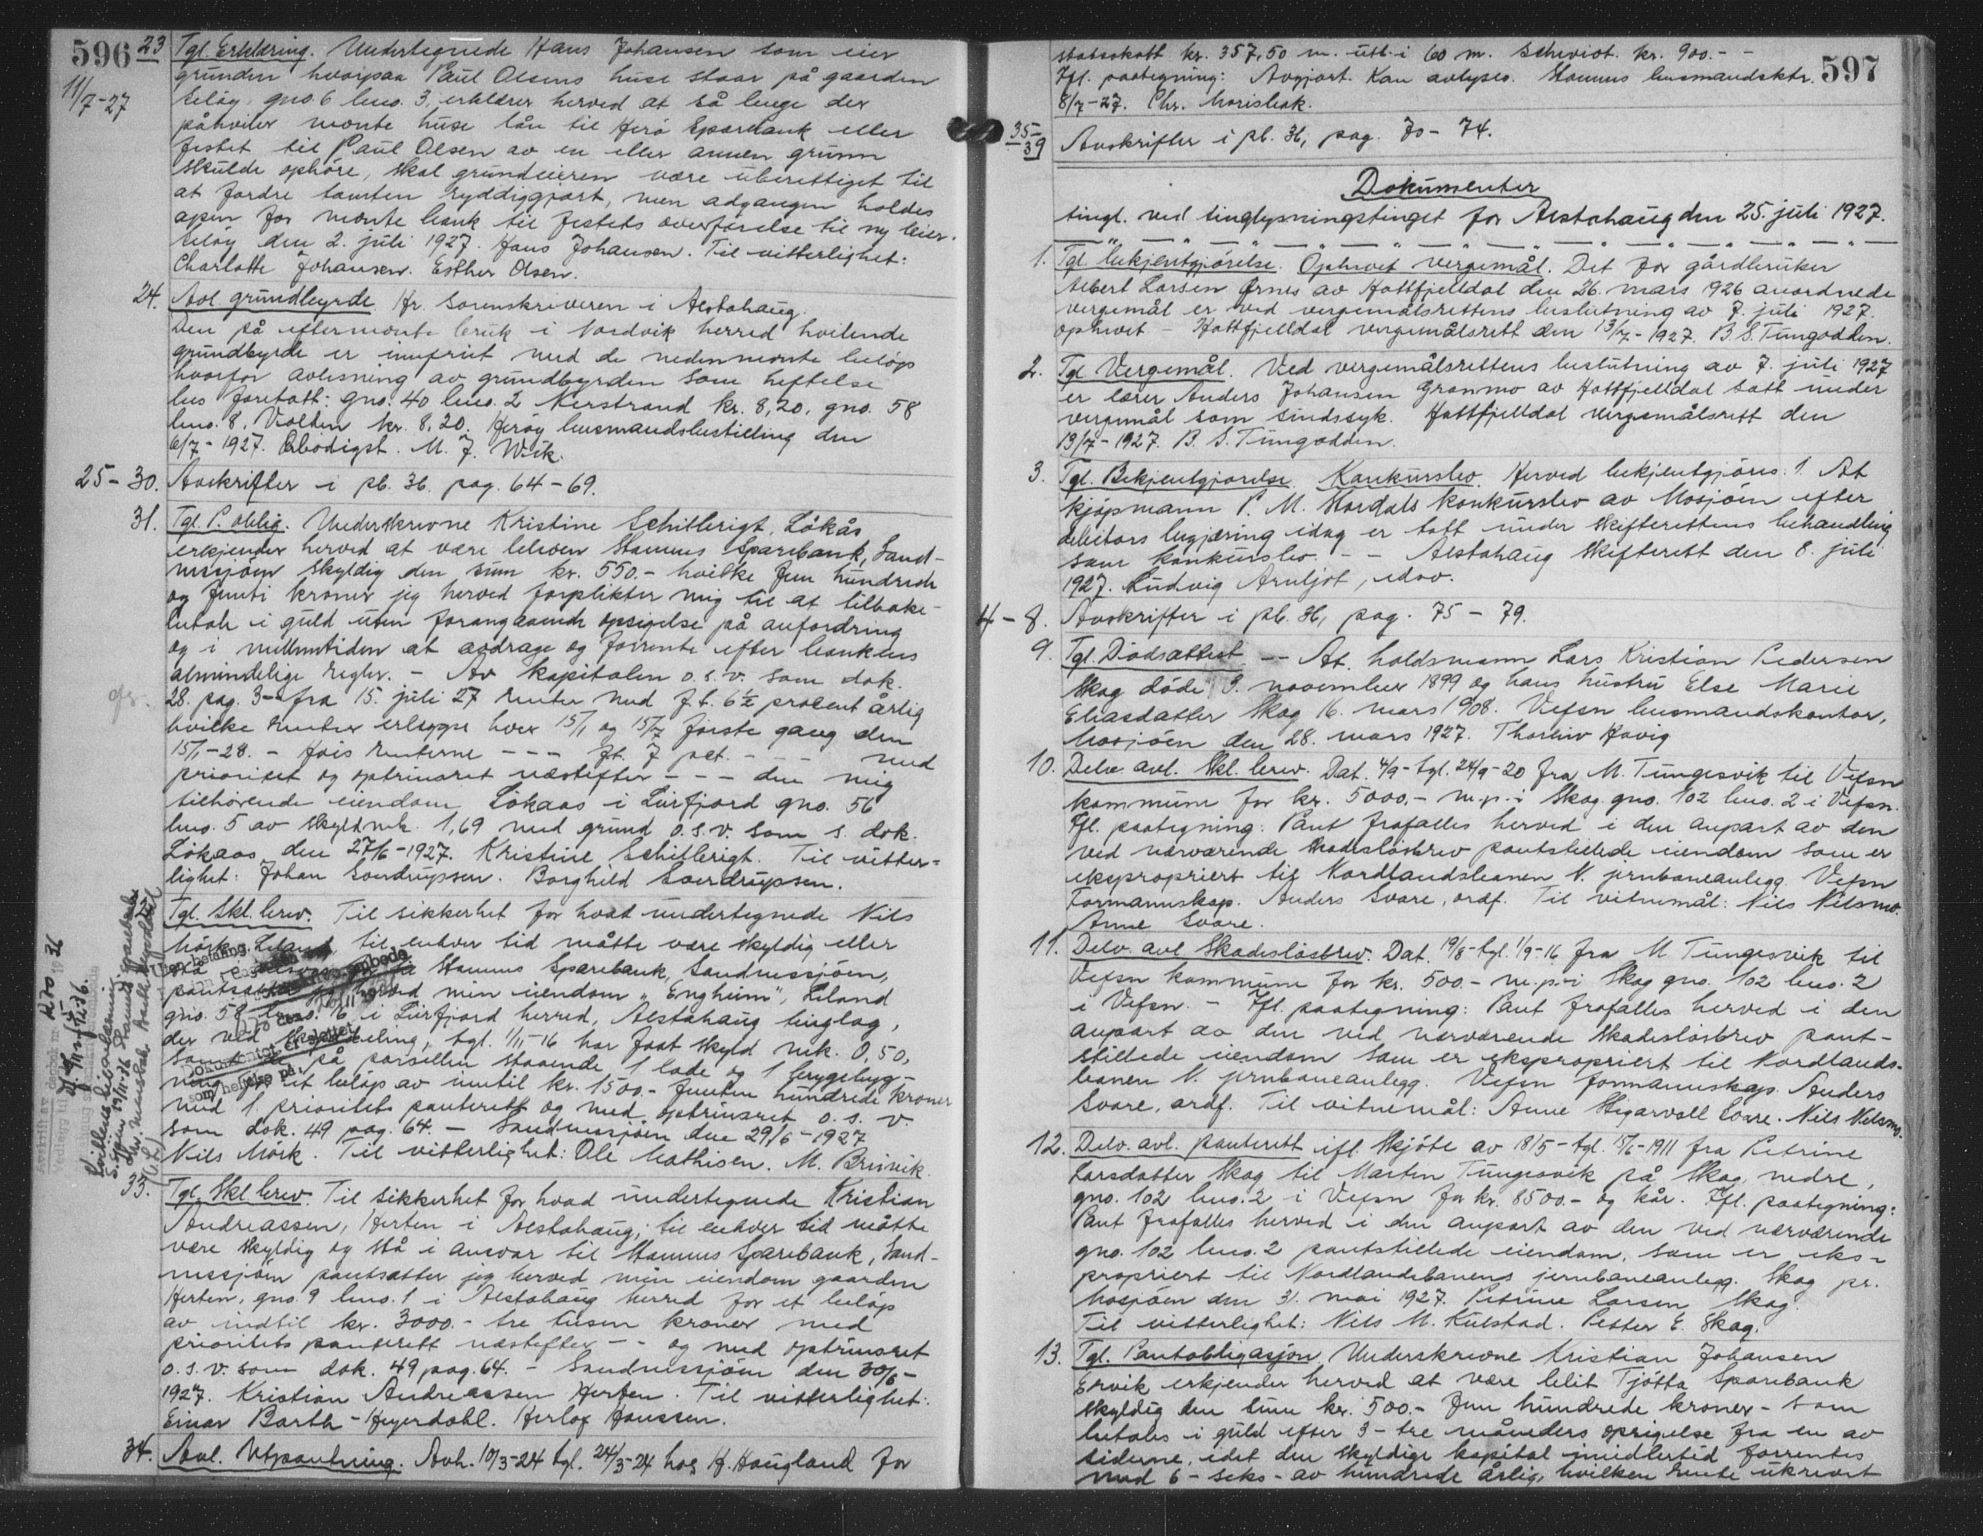 596
11/7-27
23 Tgl. Erklæring. Undertegnede Hans Johansen som eier
grunden hvorpaa Paul Olsens huse staar på gaarden
Seløy, gno. 6 bno. 3, erklærer herved at så lenge der
påhviler nevnte huse lån til Herø Sparebank eller
festet til Paul Olsen av en eller annen grunn
skulde ophøre, skal grundeieren være uberettiget til
at fordre tomten ryddiggjort, men adgangen holdes
åpen for nevnte bank til festets overførelse til ny leier.
Seløy den 2. juli 1927. Hans Johansen. Til vitterlighet:
Charlotte Johansen. Esther Olsen.
24. Avl. grundbyrde. Hr. Sorenskriveren i Alstahaug.
Den på eftermevnte bruk i Nordvik herred hvilende
grundbyrde er innfriet med de nedennevnte beløp
hvorfor avlesning av grundbyrden som heftelse
bes foretatt: gno. 40 bno. 2 Nerstrand kr. 8,20, gno. 58
bno. 8, Volden kr. 8,20. Herøy lensmandsbestilling den
6/7-1927. Ærbødigst. M. J. Wiik.
25-30. Avskrifter i pb. 36. pag. 64-69.
31. Tgl. P. oblig. Underskrevne Kristine Schitlerigt, Løkås
erkjender herved at være bleven Stamnes Sparebank, Sand-
nessjøen skyldig den sum kr. 550.- hvilke fem hundrede
og femti kroner jeg herved forplikter mig til at tilbake-
betale i guld uten forangaaende opsigelse på anfordring
og i mellemtiden at avdrage og forrente efter bankens
almindelige regler. - Av kapitalen o.s.v. som dok.
28. pag. 3 - fra 15. juli 27 renter med f.t. 6½ procent årlig
hvilke renter erlegges hver 15/1 og 15/7 første gang den
15/1-28. - Hvis renterne - - - ft. 7 pct. - - - med
prioritet og optrinsret næstefter - - - den mig
tilhørende eiendom Løkaas i Leirfjord gno. 56
bno. 5 av skyld mk. 1,69 med grund o.s.v. som s. dok.
Løkaas den 27/6-1927. Kristine Schitlerigt. Til vitter=
lighet: Johan Sverdrupsen. Borghild Sverdrupsen.
Tgl. Skl. brev. Til sikkerhet for hvad undertegnede Nils
Mørk, Leland, til enhver tid måtte være skyldig eller
Stamnes Sparebank, Sandnessjøen,
pantsætter jeg herved min eiendom "Engheim", Leland
gno. 58 bno. 6 i Leirfjord herred, Alstahaug tinglag,
der ved skylddeling, tgl. 1/11-16 har faat skyld mk. 0,50.
på parsellen staaende 1 lade og 1
for et beløp av inntil kr. 1500.- femten hundrede kroner
med 1. prioritets panterett og med optrinsret o. s. v.
som dok. 49 pag. 64. - Sandnessjøen den 29/6-1927
Nils Mørk. Til vitterlighet: Ole Mathisen. M. Brunvik
33. Tgl. Skl. brev. Til sikkerhet for hvad undertegnede Kristian
Andreassen, Herten i Alstahaug, til enhver tid måtte
være skyldig og stå i ansvar til Stamnes Sparebank, Sand-
nessjøen pantsætter jeg herved min eiendom gaarden
Herten, gno. 9 bno. 1 i Alstahaug herred for et beløp
av indtil kr. 3000.- tre tusen kroner med
prioritets panterett næstefter - - og med optrinsret
o.s.v. som dok. 49 pag. 64. - Sandnessjøen den 30/6-
1927. Kristian Andreassen Herten. Til vitterlighet:
Einar Barth-Heyerdahl. Herlof Hanssen.
34. Avl. Utpantning. Avh. 10/3-24 tgl. 24/3-24 hos H. Haugland for
597
statsskatt kr. 357,50 m. utl. i 60 m. Scheviot. kr. 900.- -
Ifl. paategning: Avgjort. Kan avlyses. Stamnes lensmandsktr.
8/7-27. Chr. Morisbak.
35-39 Avskrifter i pb. 36, pag. 70-74.
Dokumenter
tingl. ved tinglysningstinget for Alstahaug den 25. juli 1927.
1. Tgl. bekjentgjørelse. Ophevet vergemål. Det for gårdbruker
Albert Larsen Ørnes av Hattfjelldal den 26. mars 926 anordnede
vergemål er ved vergemålsrettens beslutning av 7. juli 1927.
ophevet - Hattfjelldal vergemålsrett den 13/7-1927. B. S. Tungodden.
2. Tgl. Vergemål. Ved vergemålsrettens beslutning av 7. juli 1927
er lærer Anders Johansen Granmo av Hattfjelldal satt under
vergemål som sindssyk. Hattfjelldal vergemålsrett den
13/7-1927. B. S. Tungodden.
3. Tgl. Bekjentgjørelse. Konkursbo. Herved bekjentgjøres: 1. At
kjøpmann P. M. Hardals konkursbo av Mosjøen efter
debitors begjæring idag er tatt under skifterettens behandling
som konkursbo. - - Alstahaug skifterett den 8. juli
1927. Ludvig Arnljot, edsv.
4-8. Avskrifter i pb. 36, pag. 75-79.
9. Tgl. Dødsattest. - At holdsmann Lars Kristian Pedersen
Skog døde 9. november 1899 og hans hustru Else Marie
Eliasdatter Skog 16. mars 1908. Vefsn lensmandskontor,
Mosjøen den 28. mars 1927. Thorleiv Havig
10. Delv. avl. Skl. brev. Dat. 4/9- tgl. 24/9-20 fra M. Tungesvik til Vefsn
kommune for kr. 5000.- m.p. i Skog gno. 102 bno. 2 i Vefsn.
Ifl. paategning: Pant frafalles herved i den anpart av den
ved nærværende skadesløsbrev pantstillede eiendom som er
ekspropriert til Nordlandsbanen N. jernbaneanlegg. Vefsn
Formannskap. Anders Svare, ordf. Til vitnemål: Nils Nilsmo.
Anne Svare.
11. Delv. avl. Skadesløsbrev. Dat. 19/8- tgl. 1/9-16 fra M Tungesvik til
Vefsn kommune for kr. 500.- m.p. i Skog gno. 102 bno. 2
i Vefsn. - Ifl. paategning: Pant frafalles herved i den
anpart av den ved nærværende skadesløsbrev pant-
stillede eiendom som er ekspropriert til Nordlands-
banen N. jernbaneanlegg. Vefsn formannskap. Anders
Svare, ordf. Til vitnemål: Anne Svare. Nils Nilsmo.
12. Delv. avl. panterett ifl. skjøte av 18/5- tgl. 15/6-1911 fra Petrine
Larsdatter Skog til Martin Tungesvik på Skog, nedre,
gno. 102 bno. 2 i Vefsn for kr. 8500.- og kår. Ifl. paategning:
Pant frafalles herved i den anpart av den ved nærværende
gno. 102 bno. 2 pantstillede eiendom, som er eks-
propriert til Nordlandsbanens jernbaneanlegg. Skog pr.
Mosjøen den 31. mai 1927. Petrine Larsen, Skog.
Til vitterlighet: Nils M. Kulstad. Petter E. Skog.
13. Tgl. Pantobligasjon. Underskrevne Kristian Johansen
Ervik erkjender herved at være blit Tjøtta Sparebank
skyldig den sum kr. 500.- fem hundrede kroner - som
betales i guld efter 3 - tre måneders opsigelse fra en av
siderne, idet den skyldige kapital imidlertid forrentes
med 6 - seks - av hundrede årlig, hvilken rente ukrævet